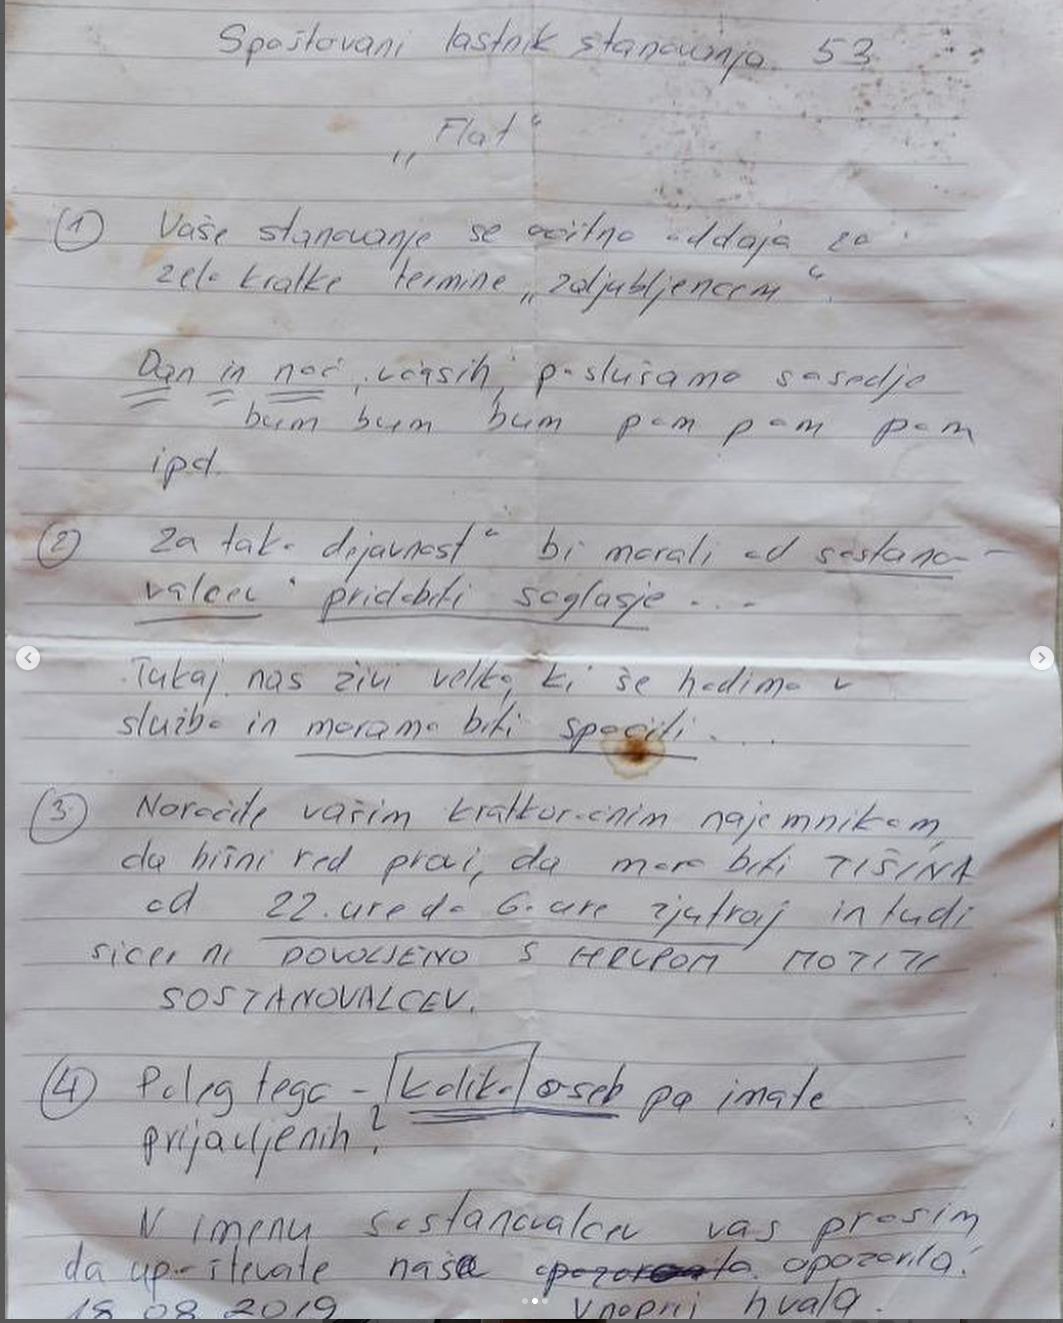 Spoštovani lastnik stanovanja 53
„Flat“
① Vaše stanovanje se očitno oddaja za
zelo kratke termine „zaljubljencem“.
Dan in noč, včasih, poslušamo sosedje
bum bum bum pom pom pom
ipd.
② Za tako dejavnost“ bi morali od sostano-
valcev pridobiti soglasje ...
Tukaj nas živi veliko, ki še hodimo v
službo in moramo biti spočiti ....
③ Naročite vašim kratkoročnim najemnikom,
da hišni red pravi, da mora biti TIŠINA
od 22. ure do 6. ure zjutraj in tudi
sicer ni DOVOLJENO S HRUPOM MOTITI
SOSTANOVALCEV.
④ Poleg tega - koliko oseb pa imate
prijavljenih?
V imenu sostanovalcev vas prosim
da upoštevate naša opozorila!
18.08.2019 Vnaprej hvala.